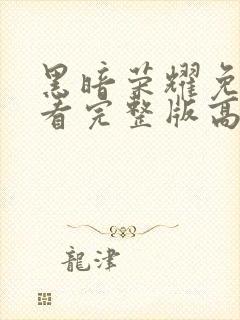 黑暗荣耀免
看完整版高
龍津